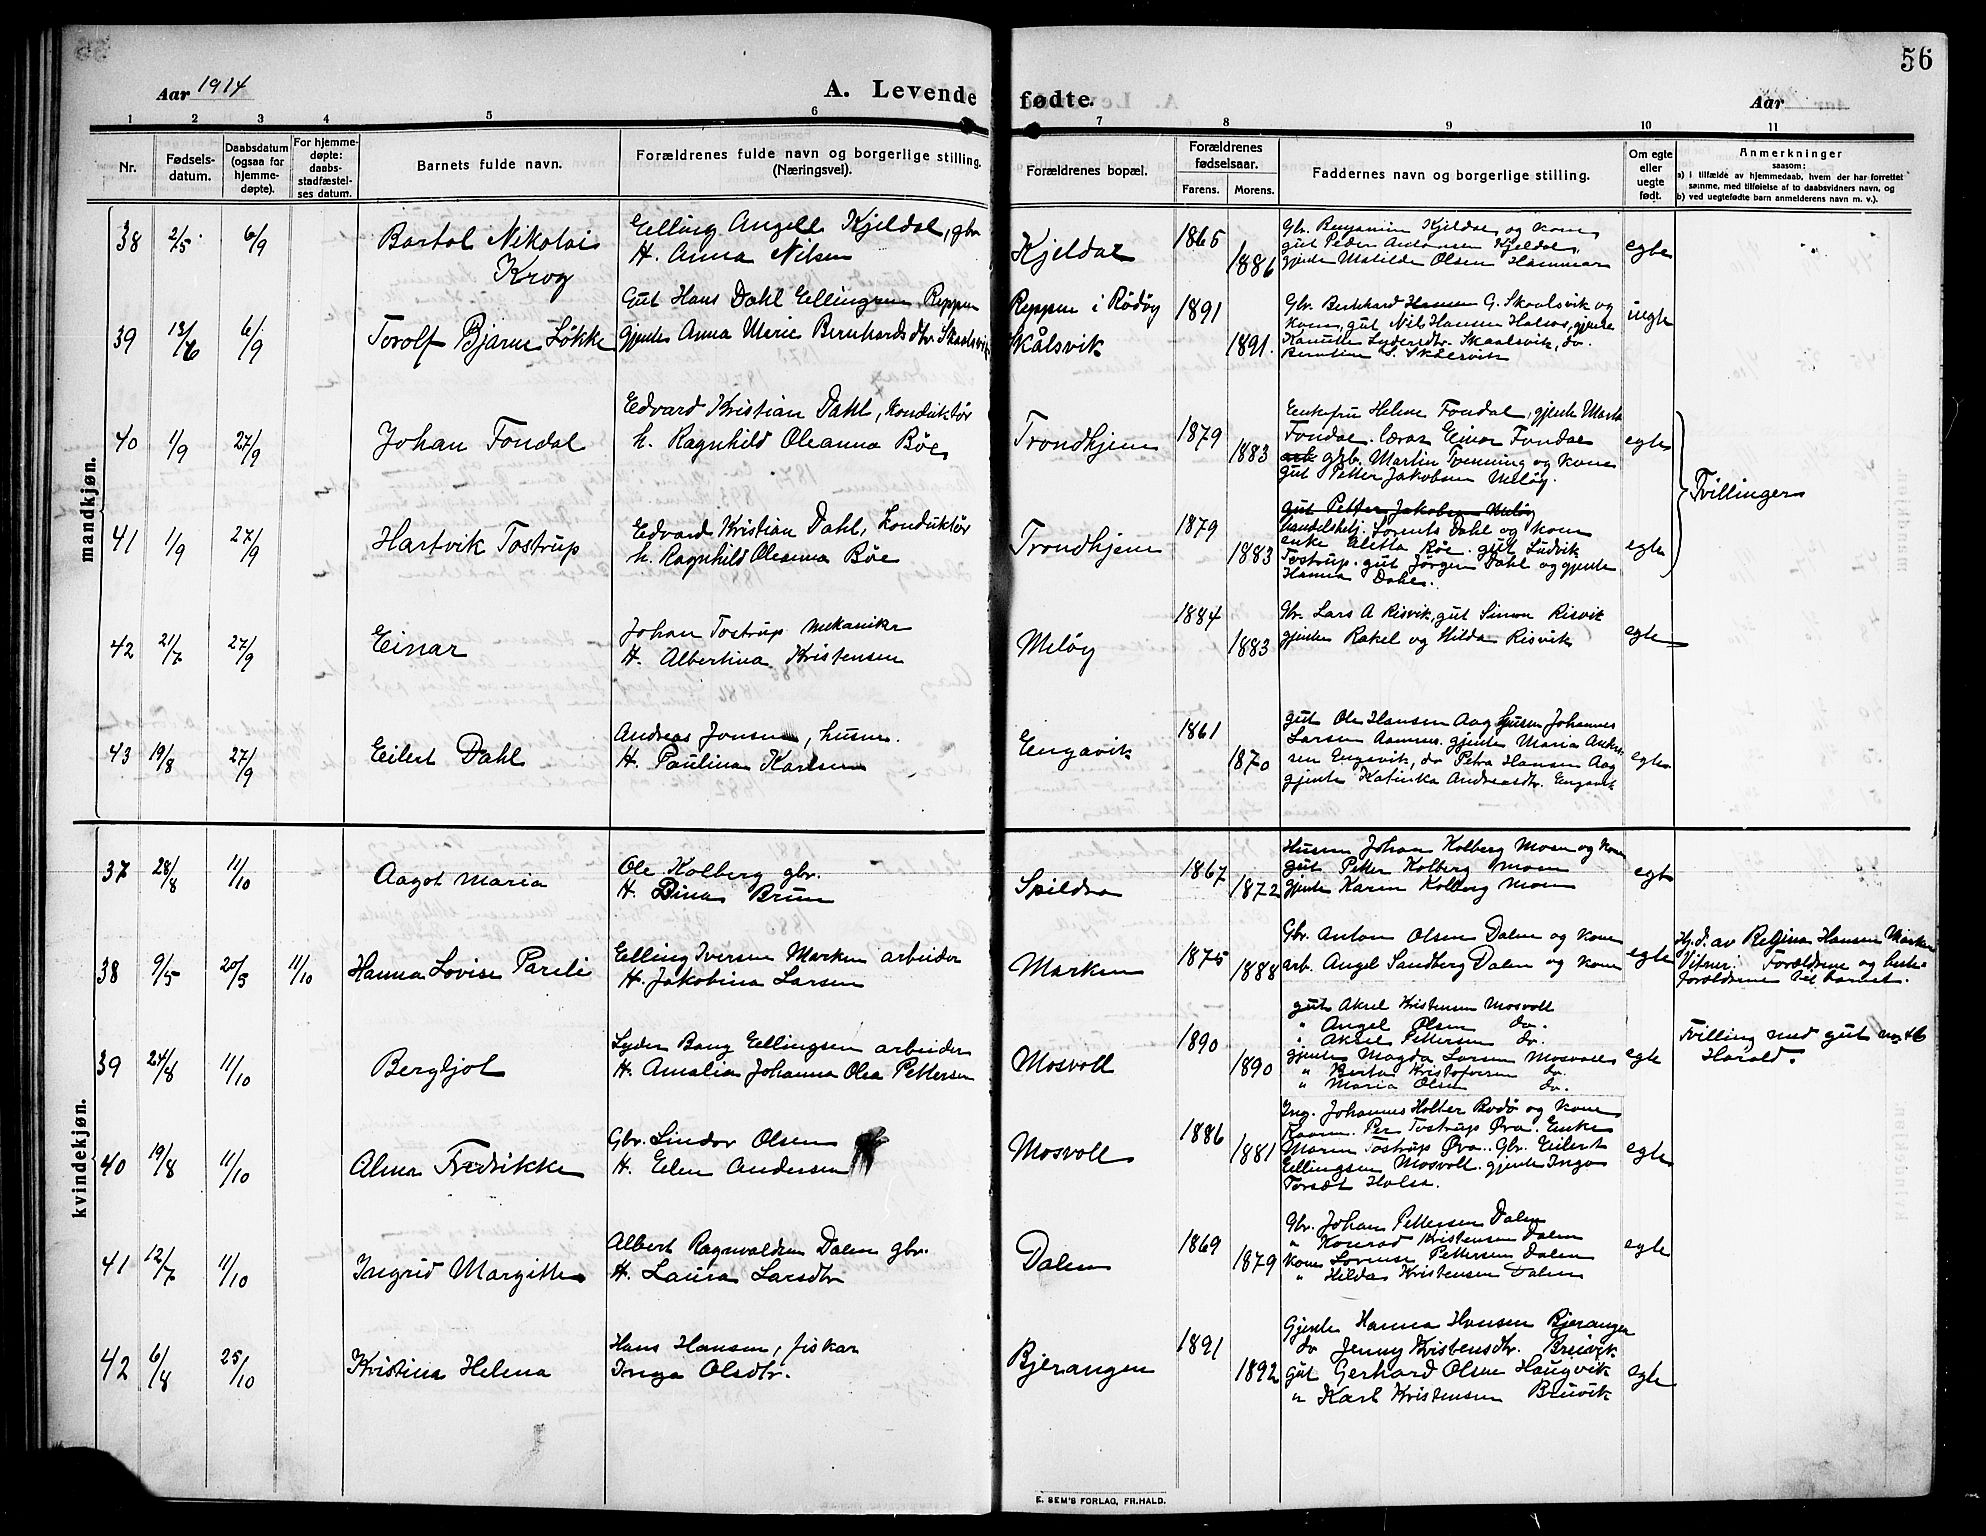 56
Aar 1914
A. Levende fødte.
Aar
1 2 3 4 5 6 7 8 9 10 11
Nr.
Fødsels-
datum.
Daabsdatum
(ogsaa for
hjemme-
døpte).
For hjemme-
døpte:
daabs-
stadfæstel-
ses datum.
Barnets fulde navn.
Forældrenes fulde navn og borgerlige stilling.
(Næringsvei).
Forældrenes bopæl.
Forældrenes
fødselsaar.
Farens. Morens.
Faddernes navn og borgerlige stilling.
Om egte
eller
uegte
født.
Anmerkninger
saasom:
a) i tilfælde av hjemmedaab, hvem der har forrettet
samme, med tilføielse af to daabsvidners navn, og
b) ved uegtefødte barn anmelderens navn m. v.).
mandkjøn.
38 2/5 6/9 Bartol Nikolai
Krog
Elling Angell Kjeldal, gbr
H. Anna Nilsen
Kjeldal 1865 1886
Gbr. Benjamin Kjeldal og kone
gut Peder Antonsen Kjeldal,
gjente Matilde Olsen Hammar
egte
39 13/6 6/9 Torolf Bjarne Løkke
Gut Hans Dahl Ellingsen, Reppen
Gjente Anna Marie Bernhardsdtr Skaalsvik
Reppen i Rødøy
Skålsvik
1891 1891.
Gbr. Bernhard Hansen G. Skaalsvik og
kone, gut Nils Hansen Halsos, gjente
Kanutte Lydersdtr. Skaalsvik, do
Berntine S. Skålsvik
uegte
40 1/9 27/9 Johan Fondal
Edvard Kristian Dahl, Konduktør
h. Ragnhild Oleanna Bøe
Trondhjem 1879 1883
Enkefru Helene Fondal, gjente Marta
Fondal. lærer Einar Fondal
gbr. Martin Tvenning og kone
gut Petter Jakobsen Meløy.
egte
Tvillinger
41 1/9 27/9 Hartvik Tostrup
Edvard Kristian Dahl, Konduktør
h. Ragnhild Oleanna Bøe
Trondhjem 1879 1883
gut Petter Jakobsen Meløy
handelsbetj. Lorents Dahl og kone
enke Aletta Bøe. gut Ludvik
Tostrup. gut Jørgen Dahl og gjente
Hanna Dahl.
egte
42 21/7 27/9 Einar
Johan Tostrup mekaniker
H. Albertina Kristensen
Meløy 1884 1883
Gbr. Lars A Risvik, gut Simon Risvik
gjente Rakel og Hilda Risvik
egte
43 19/8 27/9 Eilert Dahl
Andreas Jonsen, husm.
H. Paulina Karlsen
Engavik 1861 1870
gut Ole Hansen Aag husm Johannes
Larsen Aamnes. gjente Maria Andrea-
sen Engavik, do Petra Hansen Aag
gjente Katinka Andreasdtr. Engavik
egte
kvindekjøn.
37 28/8 11/10 Aagot Maria
Ole Kolberg gbr.
H. Dina Brun
Spildra 1867 1872
Husm Johan Kolberg Mosen og kone
gut Petter Kolberg Moen
gjente Karen Kolberg Moen
egte
38 9/5 20/5 11/10 Hanna Lovise Pareli
Elling Iversen Marken arbeider
H. Jakobina Larsen
Marken 1875 1888
Gbr. Anton Olsen Dalen og kone
arb. Angel Sandberg Dalen og kone
egte
Hj.d. av Regina Hansen Marken
Vitner: Forældrene og beste-
forældrene til barnet.
39 24/8 11/10 Bergljot
Lyder Bang Ellingsen arbeider
H. Amalia Johanna Olea Pettersen
Mosvoll 1890 1890
gut Aksel Kristensen Mosvoll
" Angel Olsen do.
" Aksel Pettersen do.
gjente Magda Larsen Mosvoll
" Berta Kristofersen do.
" Maria Olsen do.
egte
Tvilling med gut no 46
Harald.
40 19/8 11/10 Alma Fredrikke
Gbr. Lindor Olsen
H. Elen Andersen
Mosvoll 1886 1881
Ing. Johannes Holter Bodø og kone
Kaarn. Per Tostrup Øra. Enke
Maren Tostrup Øra. Gbr. Eilert
Ellingsen Mosvoll. gjente Inga
Torsdt Halsa.
egte
41 12/7 11/10 Ingrid Margitte
Albert Ragnvaldsen Dalen gbr.
H. Laura Larsdtr
Dalen 1869 1879
Gbr. Johan Pettersen Dalen
" Konrad Kristensen Dalen
Kone Lovense Pettersen Dalen
" Hilda Kristensen Dalen
egte
42 6/8 25/10 Kristine Helena
Hans Hansen, fisker
Inga Olsdtr.
Bjerangen 1891 1892
Gjente Hanna Hansen Bjerangen
do Jenny Kristensdtr. Breivik
Gut Gerhard Olsen Haugvik
" Karl Kristensen Breivik
egte
E. SEM'S FORLAG, FR.HALD.